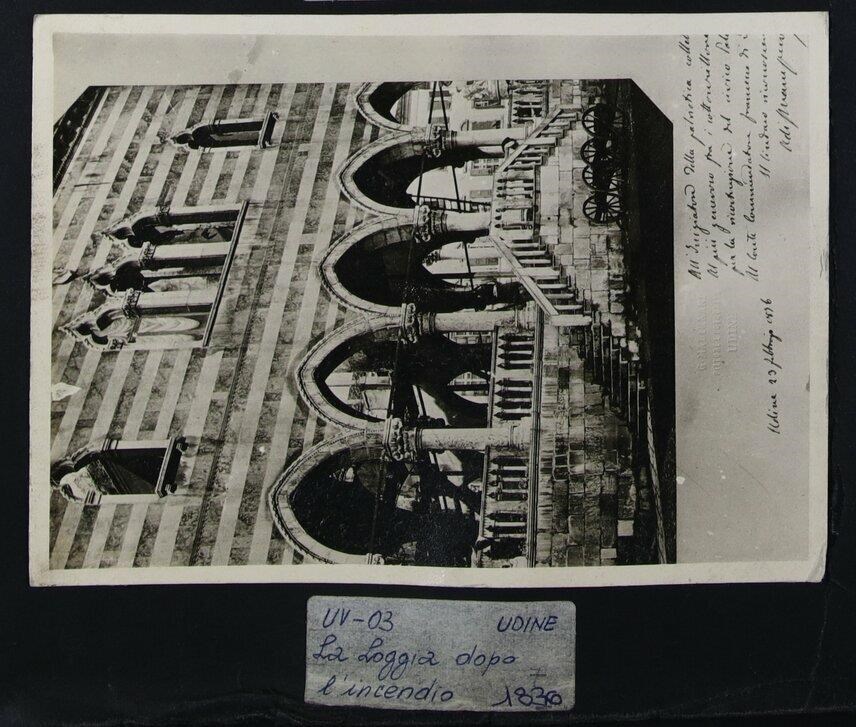 All'Iniziatore della patriottica collet
Al più generoso fra i sottoscrittori
per la ricostruzione del civico Pala
Al Conte Commendatore Francesco di
Il Sindaco riconoscen
Udine 23 febbrajo 1876
UV-03 UDINE
La Loggia dopo
l'incendio 1876